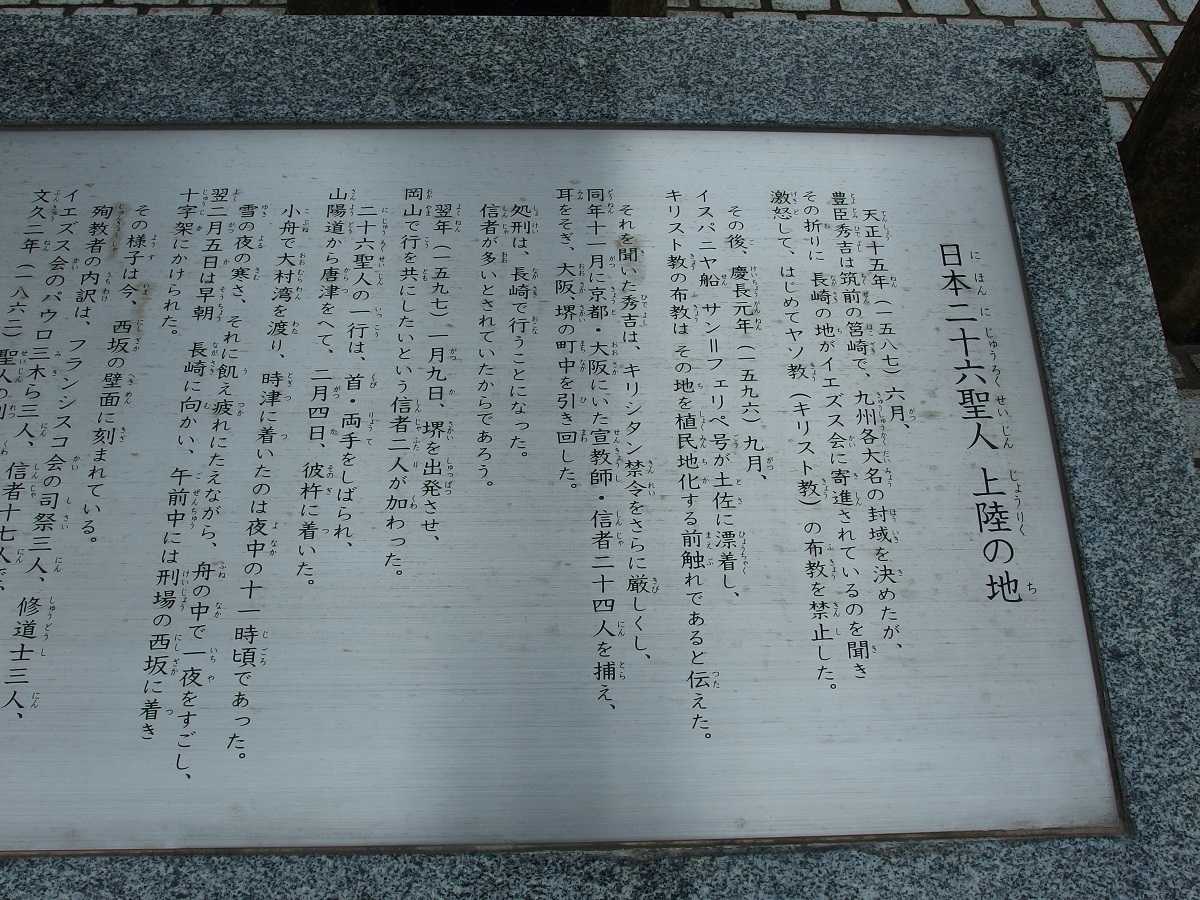 日本二十六聖人 上陸の地
天正十五年（一五八七）六月、
豊臣秀吉は筑前の筥崎で、九州各大名の封域を決めたが、
その折りに 長崎の地がイエズス会に寄進されているのを聞き
激怒して、はじめてヤソ教（キリスト教）の布教を禁止した。
その後、慶長元年（一五九六）九月、
イスパニヤ船 サン＝フェリペ号が土佐に漂着し、
キリスト教の布教は その地を植民地化する前触れであると伝えた。
それを聞いた秀吉は、キリシタン禁令をさらに厳しくし、
同年十一月に京都・大阪にいた宣教師・信者二十四人を捕え、
耳をそぎ、大阪、堺の町中を引き回した。
処刑は、長崎で行うことになった。
信者が多いとされていたからであろう。
翌年（一五九七）一月九日、堺を出発させ、
岡山で行を共にしたいという信者二人が加わった。
二十六聖人の一行は、首・両手をしばられ、
山陽道から唐津をへて、二月四日、彼杵に着いた。
小舟で大村湾を渡り、時津に着いたのは夜中の十一時頃であった。
雪の夜の寒さ、それに飢え疲れにたえながら、舟の中で一夜をすごし、
翌二月五日は早朝 長崎に向かい、午前中には刑場の西坂に着き
十字架にかけられた。
その様子は今、西坂の壁面に刻まれている。
殉教者の内訳は、フランシスコ会の司祭三人、修道士三人、
イエズス会のパウロ三木ら三人、信者十七人で、
文久二年（一八六二）聖人の列